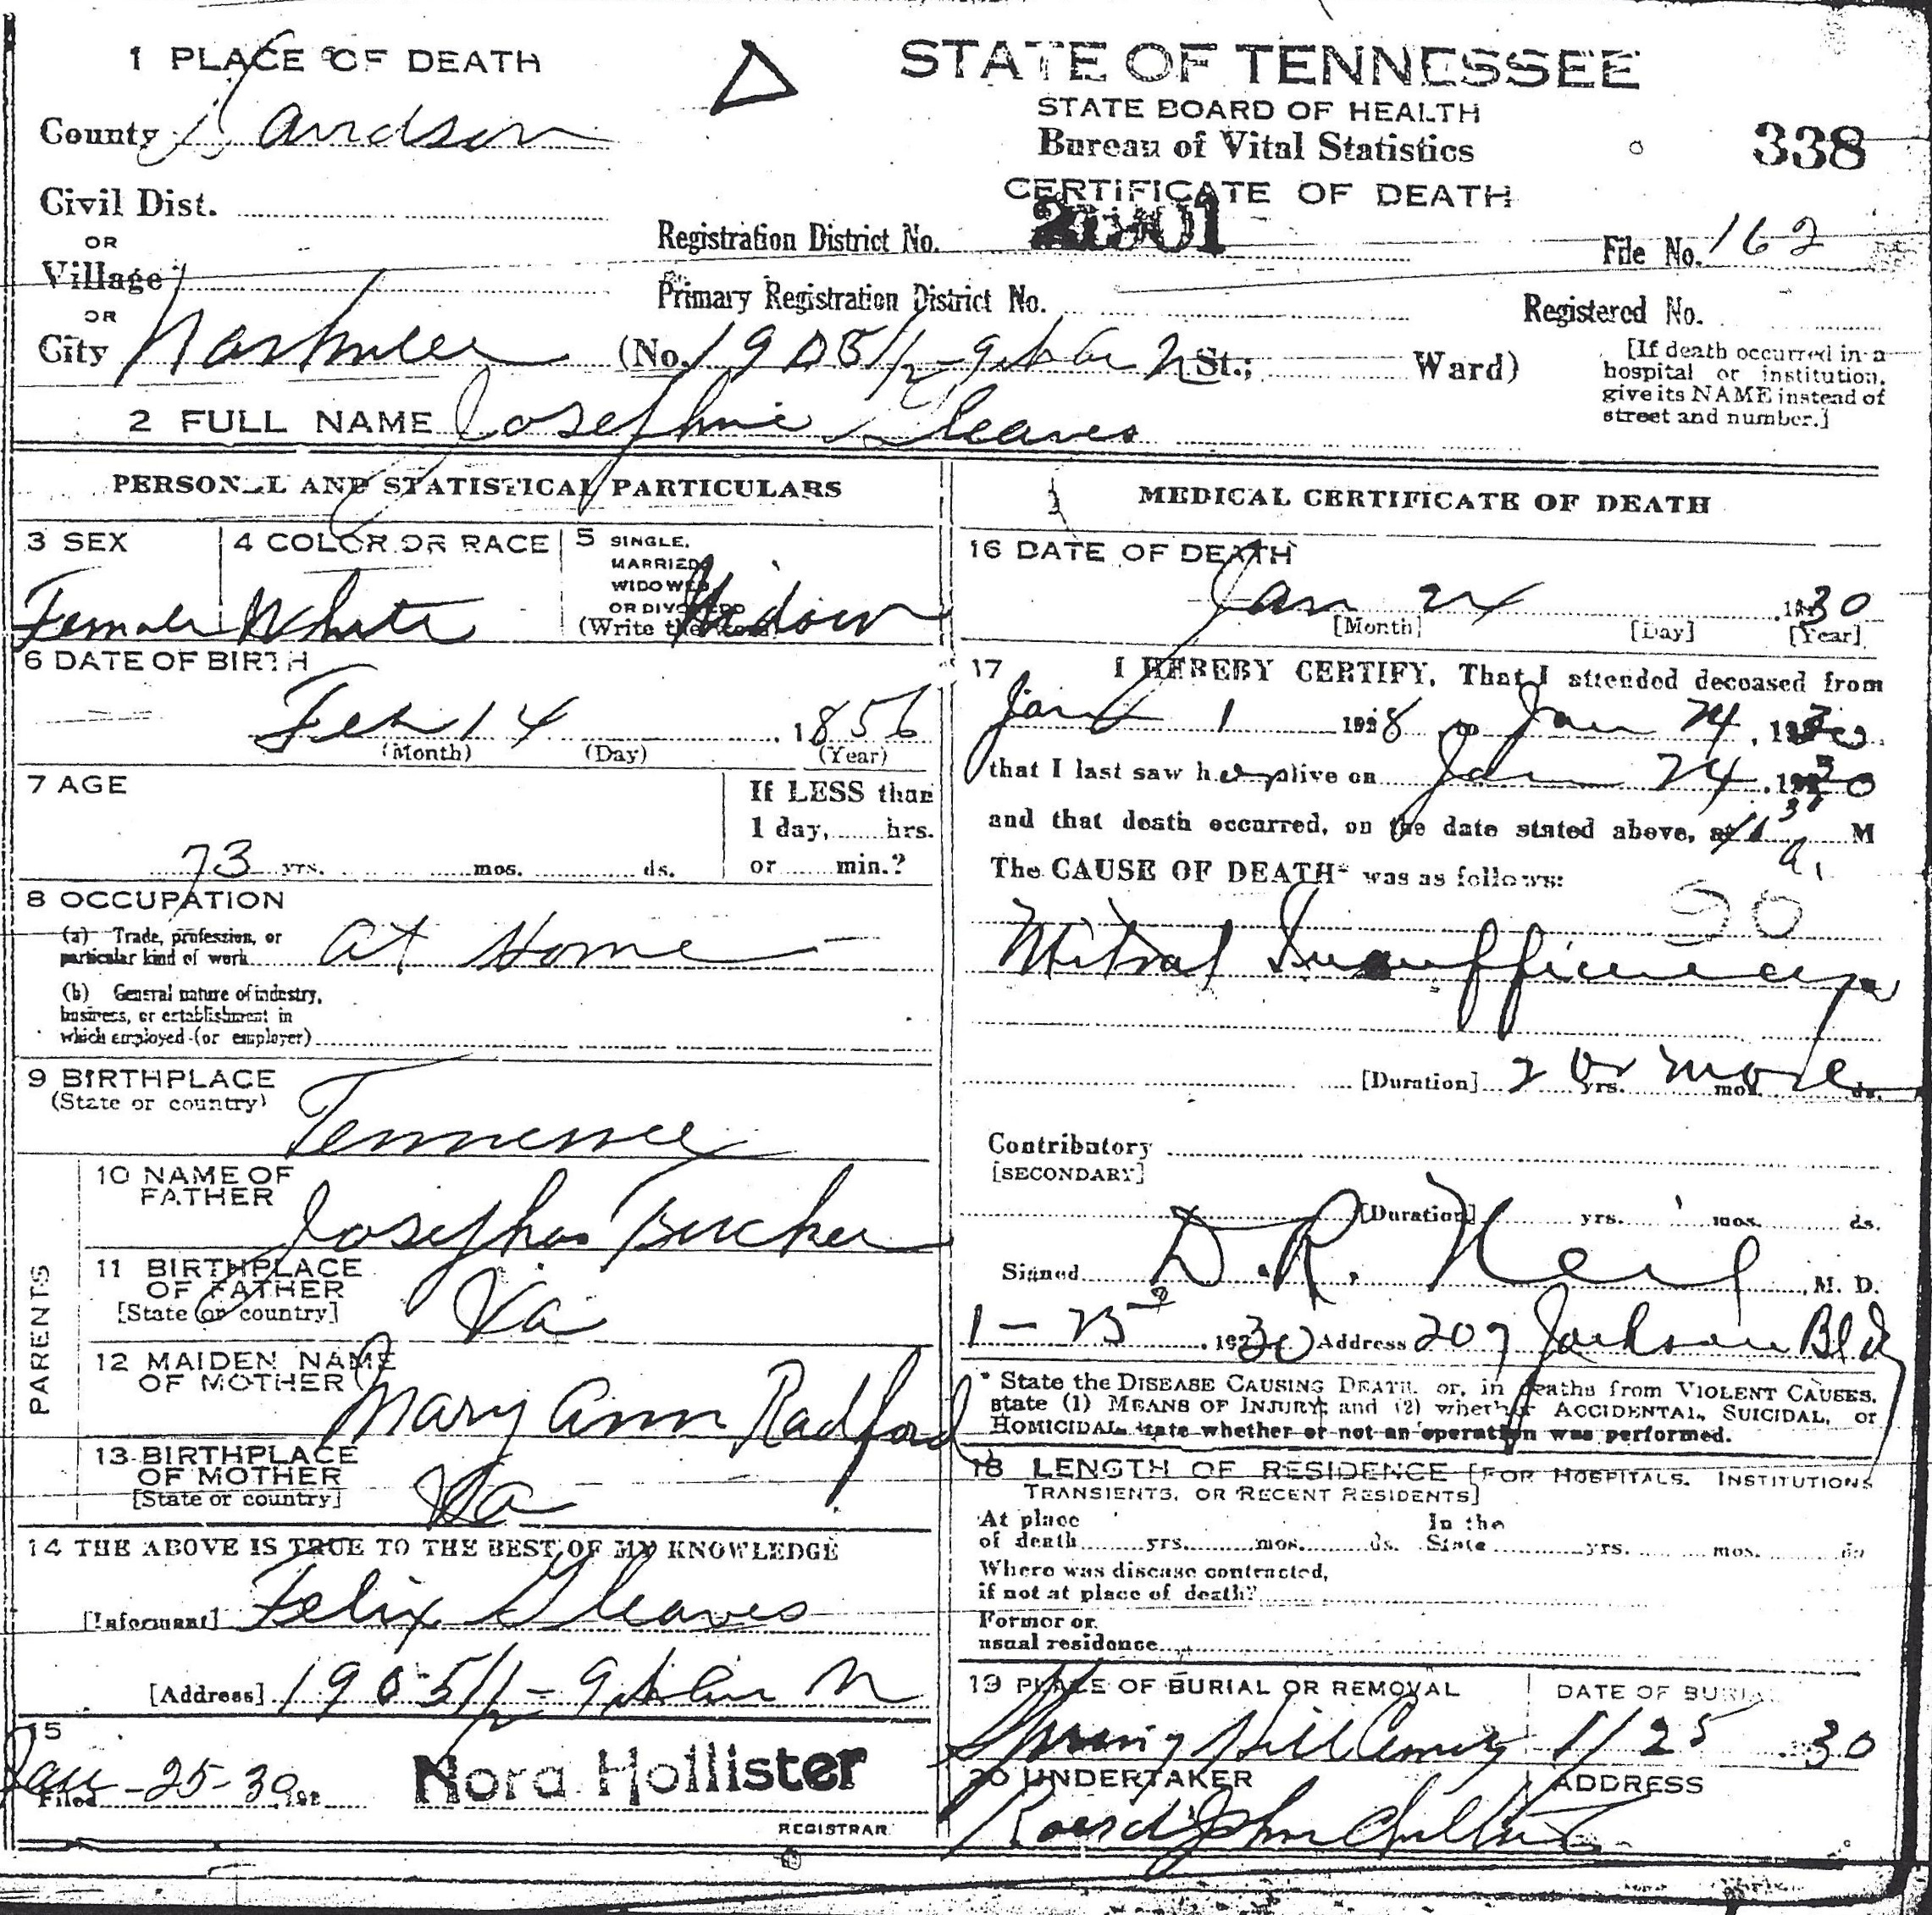 1 PLACE OF DEATH
STATE OF TENNESSEE
STATE BOARD OF HEALTH
Bureau of Vital Statistics
CERTIFICATE OF DEATH
338
County Davidson
Civil Dist.
OR
Village
OR
City Nashville (No. 1905 1/2 - 9th Ave N St.; Ward)
Registration District No.
File No. 162
Primary Registration District No.
Registered No.
[If death occurred in a
hospital or institution,
give its NAME instead of
street and number.]
2 FULL NAME Josephine Gleaves
PERSONAL AND STATISTICAL PARTICULARS
3 SEX
Female
4 COLOR OR RACE
White
5 SINGLE,
MARRIED
WIDOWED
OR DIVORCED
(Write the word)
Widow
6 DATE OF BIRTH
Feb 14 1856
(Month) (Day) (Year)
7 AGE
73 yrs. mos. ds.
If LESS than
1 day, hrs.
or min.?
8 OCCUPATION
(a) Trade, profession, or
particular kind of work at Home
(b) General nature of industry,
business, or establishment in
which employed (or employer)
9 BIRTHPLACE
(State or country)
Tennessee
PARENTS
10 NAME OF
FATHER
Josephus
11 BIRTHPLACE
OF FATHER
[State or country]
Va
12 MAIDEN NAME
OF MOTHER
Mary Ann Radford
13 BIRTHPLACE
OF MOTHER
[State or country]
Va
14 THE ABOVE IS TRUE TO THE BEST OF MY KNOWLEDGE
[Informant] Felix Gleaves
[Address] 1905 1/2 - 9th Ave N
15
Filed Jan-25-30 192
Nora Hollister
REGISTRAR
MEDICAL CERTIFICATE OF DEATH
16 DATE OF DEATH
Jan 24 1930
[Month] [Day] [Year]
17 I HEREBY CERTIFY, That I attended deceased from
Jan 1 1928 to Jan 24, 1930
that I last saw her alive on Jan 24, 1930
and that death occurred, on the date stated above, at M
The CAUSE OF DEATH* was as follows:
90
Mitral Insufficiency
[Duration] 2 yrs. or more mos. ds.
Contributory
[SECONDARY]
[Duration] yrs. mos. ds.
Signed D.R. Neil, M. D.
1-25, 1930 Address 207 Jackson Bldg
* State the DISEASE CAUSING DEATH, or, in deaths from VIOLENT CAUSES,
state (1) MEANS OF INJURY; and (2) whether ACCIDENTAL, SUICIDAL, or
HOMICIDAL. State whether or not an operation was performed.
18 LENGTH OF RESIDENCE [FOR HOSPITALS, INSTITUTIONS
TRANSIENTS, OR RECENT RESIDENTS]
At place
of death yrs. mos. ds.
In the
State yrs. mos. ds
Where was disease contracted,
if not at place of death?
Former or
usual residence
19 PLACE OF BURIAL OR REMOVAL
Spring Hill Cemty
DATE OF BURIAL
1/25 30
20 UNDERTAKER
ADDRESS